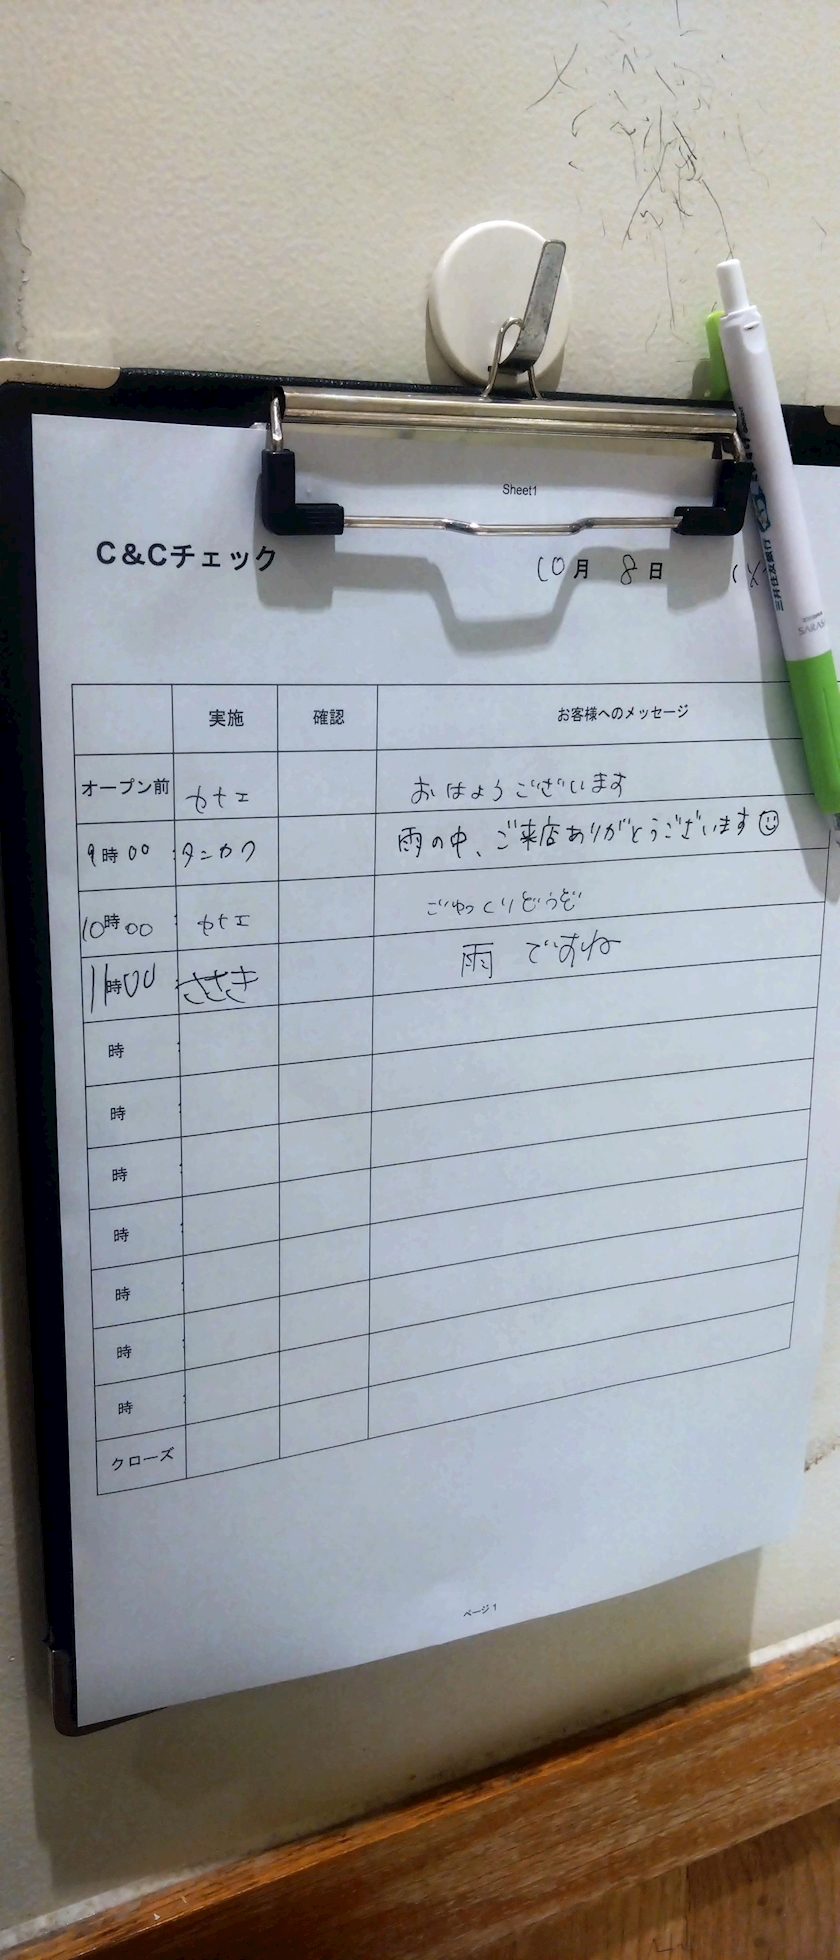 Sheet1
C&Cチェック 10月 8日
三井住友銀行
SARAS
実施 確認 お客様へのメッセージ
オープン前 おはようございます
9時00 : タニカワ 雨の中、ご来店ありがとうございます☺
10時00 : ごゆっくりどうぞ
11時00 ささき 雨 ですね
時 :
時 :
時 :
時 :
時 :
時 :
時 :
クローズ
ページ 1